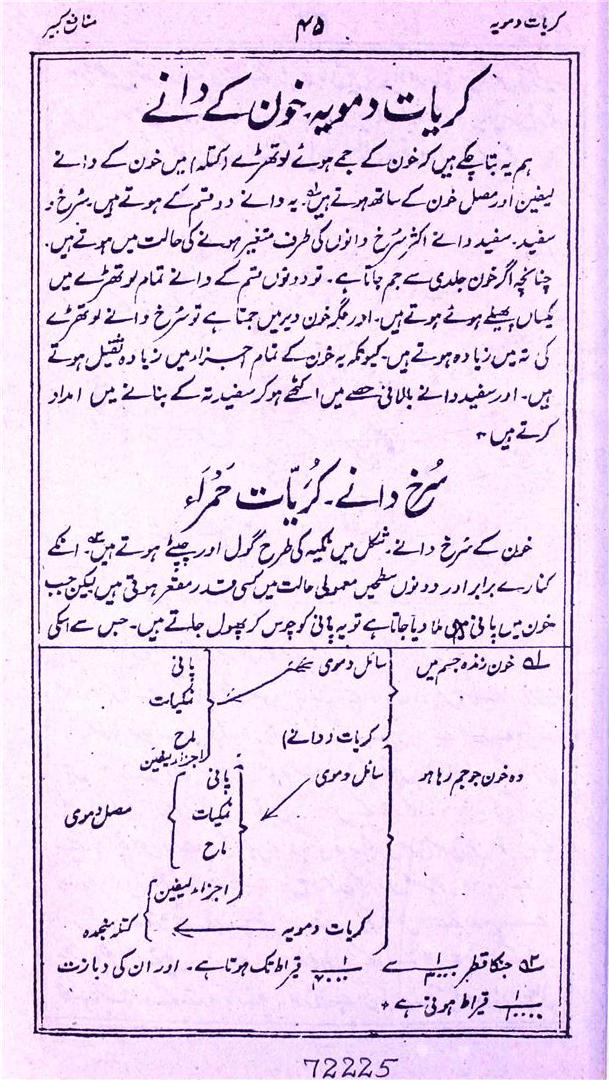 کریات دمویہ ۴۵ منافع کبیر
کریات دمویہ۔ خون کے دانے
ہم یہ بتا چکے ہیں کہ خون کے جمے ہوئے لوتھڑے (کتلہ) میں خون کے دانے
لیفین اور مصل خون کے ساتھ ہوتے ہیں۱؎۔ یہ دانے دو قسم کے ہوتے ہیں۔ سُرخ و
سفید۔ سفید دانے اکثر سُرخ دانوں کی طرف متغیر ہونے کی حالت میں ہوتے ہیں۔
چنانچہ اگر خون جلدی سے جم جاتا ہے۔ تو دونوں قسم کے دانے تمام لوتھڑے میں
یکساں پھیلے ہوئے ہوتے ہیں۔ اور مگر خون دیر میں جمتا ہے تو سُرخ دانے لوتھڑے
کی تہ میں زیادہ ہوتے ہیں۔ کیونکہ یہ خون کے تمام اجزاء میں زیادہ ثقیل ہوتے
ہیں۔ اور سفید دانے بالائی حصے میں اکٹھے ہو کر سفید تہ کے بنانے میں امداد
کرتے ہیں ۔
سُرخ دانے۔ کُرَیّات حَمْرَاء
خون کے سُرخ دانے۔ شکل میں ٹکیہ کی طرح گول اور چپٹے ہوتے ہیں۲؎۔ انکے
کنارے برابر اور دونوں سطحیں معمولی حالت میں کسی قدر مقعر ہوتی ہیں لیکن جب
خون میں پانی ملا دیا جاتا ہے تو یہ پانی کو چوس کر پھول جاتے ہیں۔ جس سے اسکی
۱؎ خون زندہ جسم میں سائل دموی پانی
نمکیات
ماح
اجزاء لیفین
کریات (دانے)
وہ خون جو جم رہا ہو سائل دموی پانی
نمکیات مصل دموی
ماح
اجزاء لیفین
کریات دمویہ کتلہ منجمدہ
۲؎ جنکا قطر سے قیراط تک ہوتا ہے۔ اور ان کی دبازت
قیراط ہوتی ہے ۔
72225